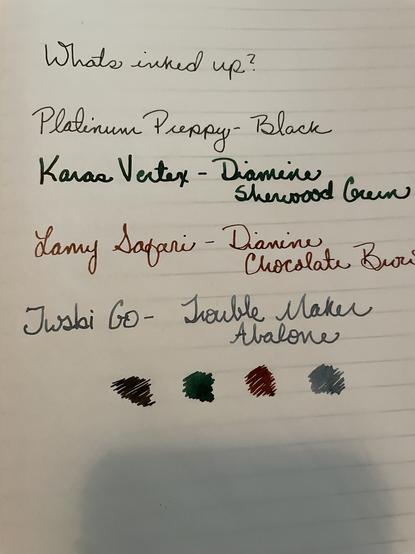 Whats inked up?
Platinum Preppy - Black
Karas Vertex - Diamine
Sherwood Green
Lamy Safari - Diamine
Chocolate
Twsbi GO - Trouble Maker
Abalone